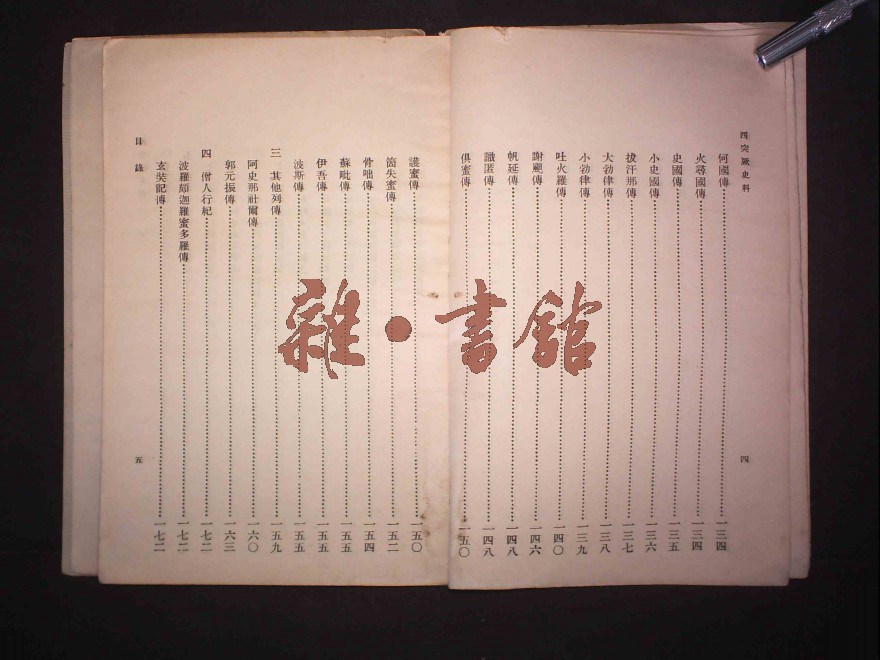 西突厥史料
何國傳 一三四
火尋國傳 一三四
史國傳 一三五
小史國傳 一三六
拔汗那傳 一三七
大勃律傳 一三八
小勃律傳 一三九
吐火羅傳 一四〇
謝䫻傳 一四六
帆延傳 一四八
識匿傳 一四八
俱蜜傳 一五〇
四
護蜜傳 一五〇
箇失蜜傳 一五二
骨咄傳 一五四
蘇毗傳 一五五
伊吾傳 一五五
波斯傳 一五五
三 其他列傳 一五九
阿史那社爾傳 一六〇
郭元振傳 一六三
四 僧人行紀 一七二
波羅頗迦羅蜜多羅傳 一七二
玄奘記傳 一七二
目錄
五
雜·書館